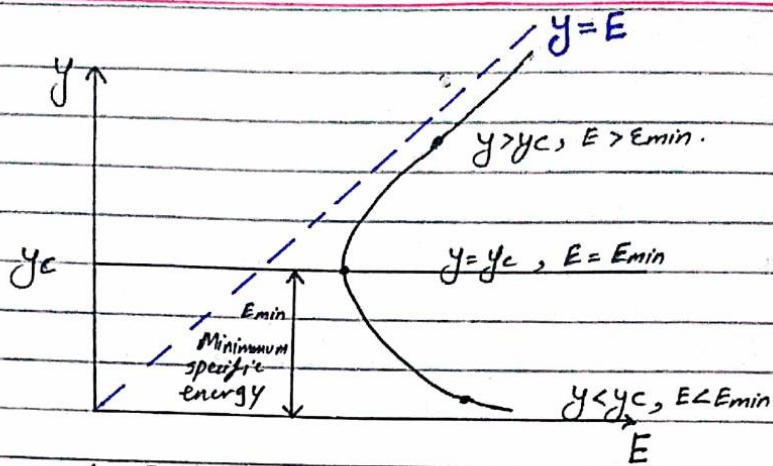 y = E
y
y>yc, E > Emin.
yc
y = yc , E = Emin
Emin
Minimmum
specific
energy
y<yc, E<Emin
E